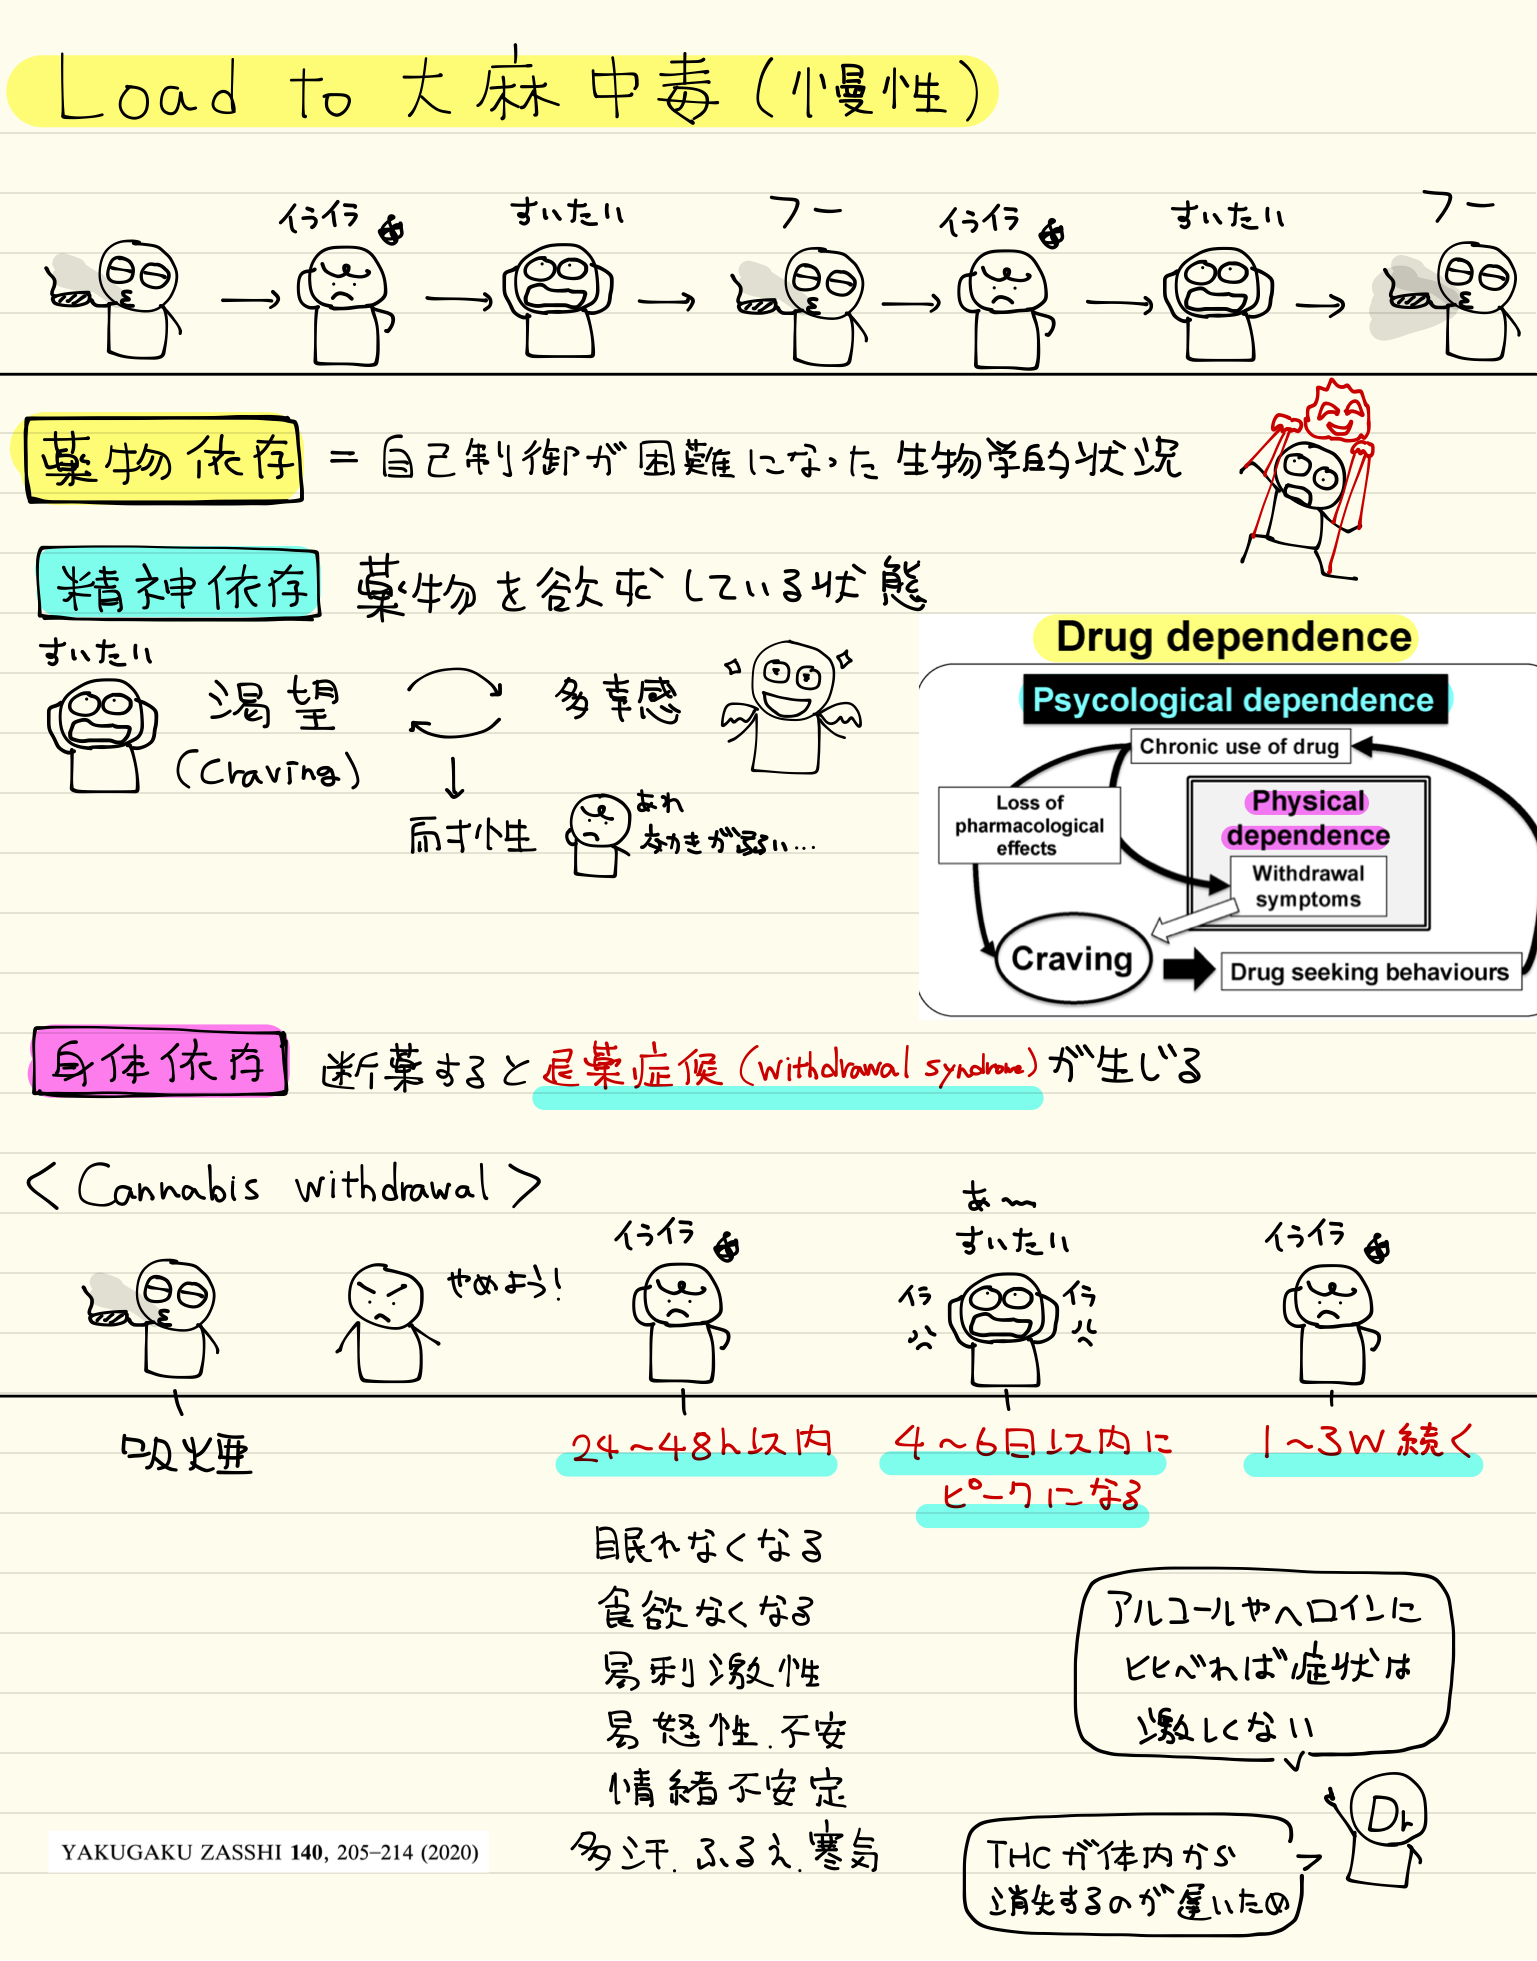 Load to 大麻中毒(慢性)
イライラ
すいたい
フー
イライラ
すいたい
フー
薬物依存 = 自己制御が困難になった生物学的状況
精神依存 薬物を欲求している状態
すいたい
渇望
(Craving)
多幸感
耐性
あれ
なんかききが弱い...
Drug dependence
Psycological dependence
Chronic use of drug
Loss of
pharmacological
effects
Physical
dependence
Withdrawal
symptoms
Craving
Drug seeking behaviours
身体依存 断薬すると退薬症候(withdrawal syndrome)が生じる
<Cannabis withdrawal>
やめよう!
イライラ
あ〜
すいたい
イラ
イラ
イライラ
吸煙
24~48h以内
4~6日以内に
ピークになる
1~3W続く
眠れなくなる
食欲なくなる
易刺激性
易怒性.不安
情緒不安定
多汗.ふるえ.寒気
アルコールやヘロインに
比べれば症状は
激しくない
Dr
THCが体内から
消失するのが遅いため
YAKUGAKU ZASSHI 140, 205–214 (2020)